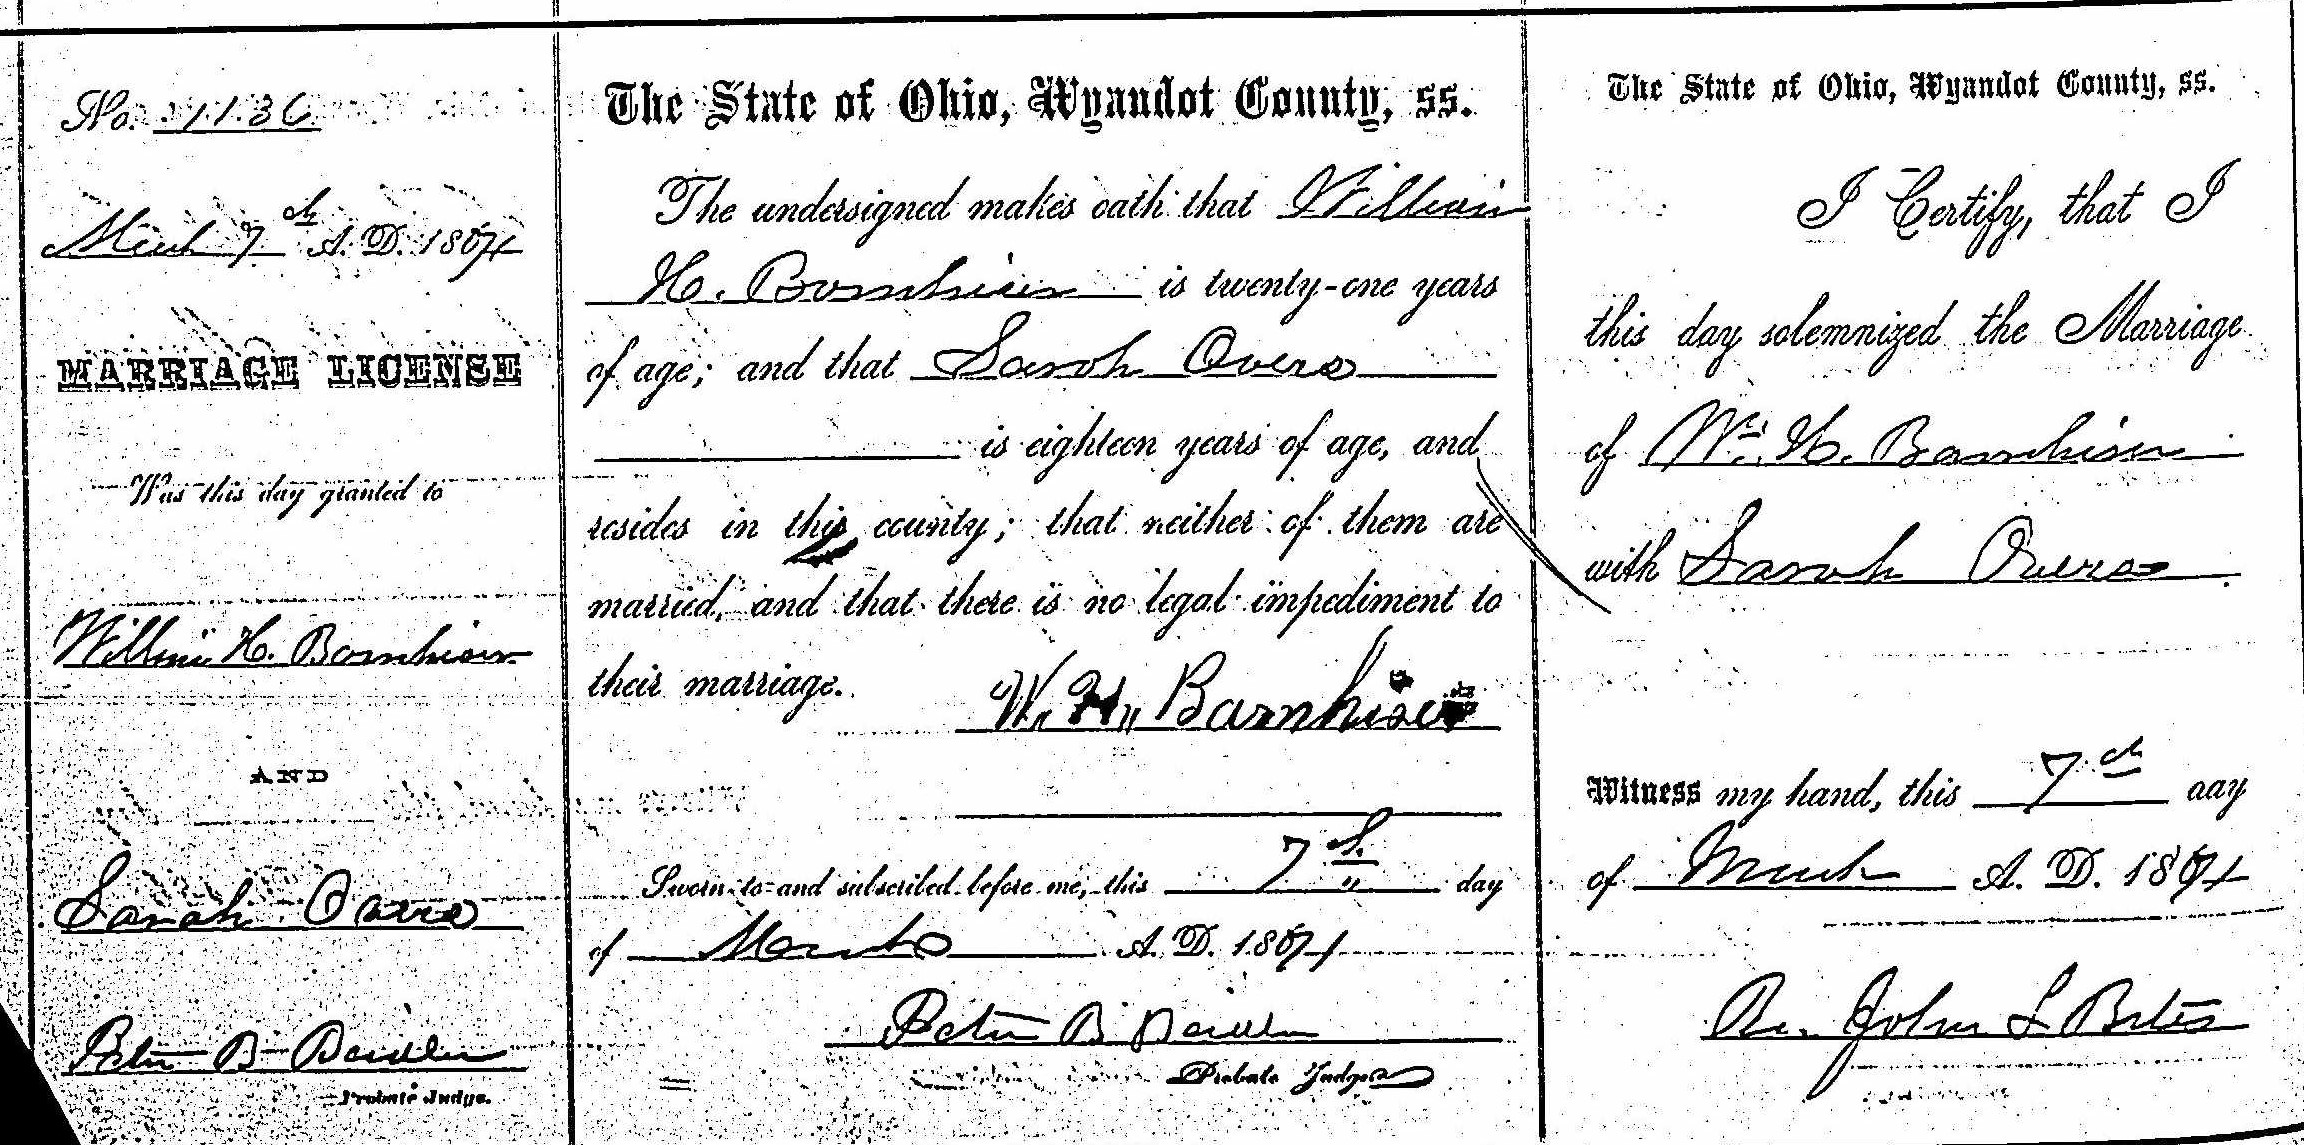 No. 1136
March 7th A. D. 1864
MARRIAGE LICENSE
Was this day granted to
William H. Barnhiser
AND
Sarah Overs
Peter B.
Probate Judge.
The State of Ohio, Wyandot County, ss.
The undersigned makes oath that William
H. Barnhiser is twenty-one years
of age; and that Sarah Overs
is eighteen years of age, and
resides in this county; that neither of them are
married, and that there is no legal impediment to
their marriage.
W. H. Barnhiser
Sworn to and subscribed before me, this 7th day
of March A. D. 1864
Peter B
Probate Judge
The State of Ohio, Wyandot County, ss.
I Certify, that I
this day solemnized the Marriage
of Wm. H. Barnhiser
with Sarah Overs
Witness my hand, this 7th day
of March A. D. 1864
John L